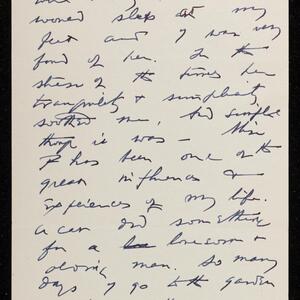 would sleep at my
feet and I was very
fond of her. In the
stress of the times her
tranquility & simplicity
soothed me, tho simple
tho it was - this
has been one of the
great influences &
experiences of my life.
a cat did something
for a lonesome &
man. So many
days I go to the garden